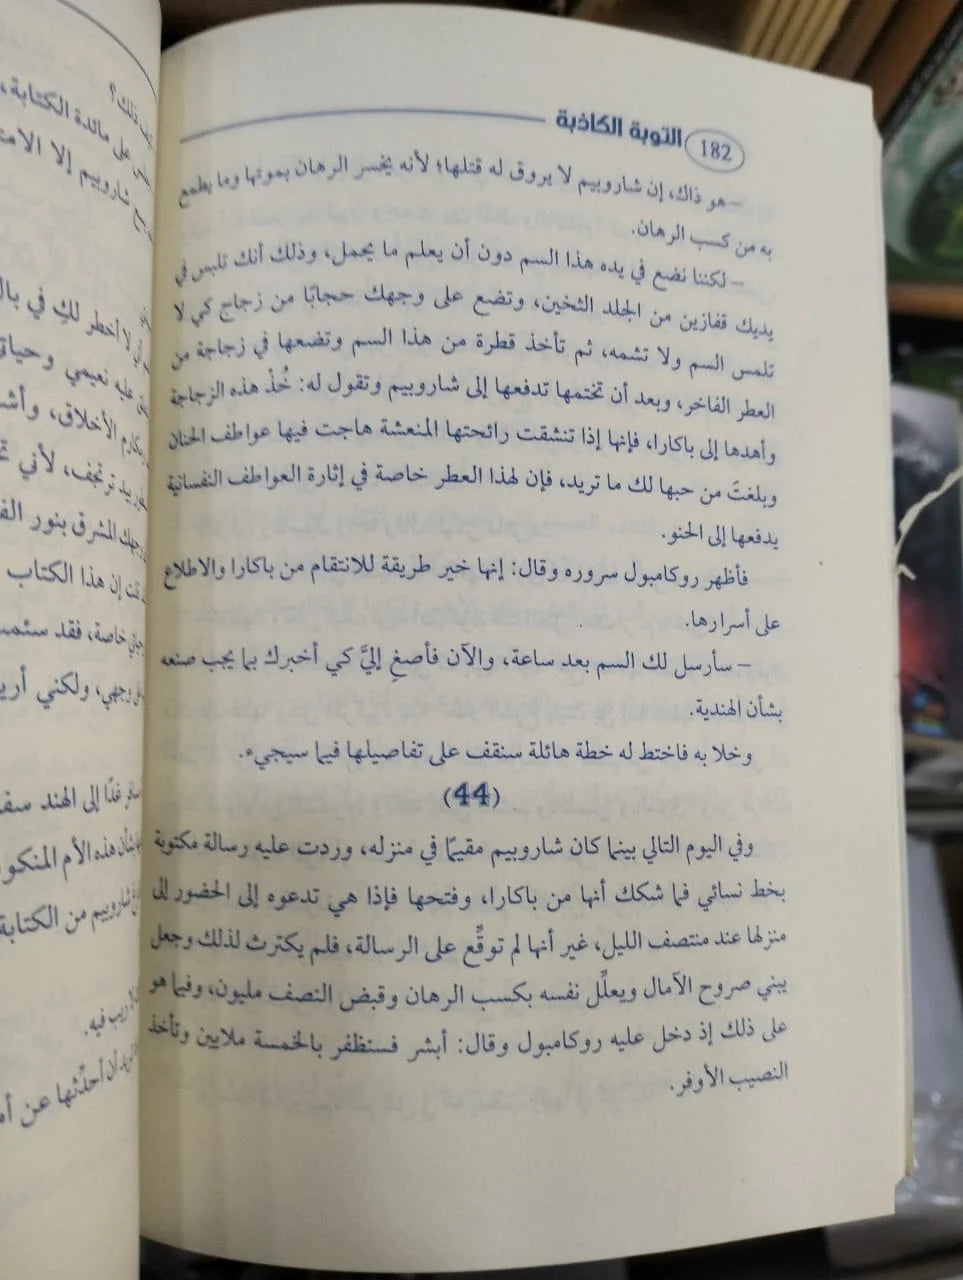 182 التوبة الكاذبة
– هو ذاك، إن شاروبيم لا يروق له قتلها؛ لأنه يخسر الرهان بموتها وما يطمع
به من كسب الرهان.
– لكننا نضع في يده هذا السم دون أن يعلم ما يحمل، وذلك أنك تلبس في
يديك قفازين من الجلد الثخين، وتضع على وجهك حجابًا من زجاج كي لا
تلمس السم ولا تشمه، ثم تأخذ قطرة من هذا السم وتضعها في زجاجة من
العطر الفاخر، وبعد أن تختمها تدفعها إلى شاروبيم وتقول له: خُذْ هذه الزجاجة
وأهدها إلى باكارا، فإنها إذا تنشقت رائحتها المنعشة هاجت فيها عواطف الحنان
وبلغتَ من حبها لك ما تريد، فإن لهذا العطر خاصة في إثارة العواطف النفسانية
يدفعها إلى الحنو.
فأظهر روكامبول سروره وقال: إنها خير طريقة للانتقام من باكارا والاطلاع
على أسرارها.
– سأرسل لك السم بعد ساعة، والآن فأصغِ إليَّ كي أخبرك بما يجب صنعه
بشأن الهندية.
وخلا به فاختط له خطة هائلة سنقف على تفاصيلها فيما سيجيء.
(44)
وفي اليوم التالي بينما كان شاروبيم مقيمًا في منزله، وردت عليه رسالة مكتوبة
بخط نسائي فما شكك أنها من باكارا، وفتحها فإذا هي تدعوه إلى الحضور إلى
منزلها عند منتصف الليل، غير أنها لم توقِّع على الرسالة، فلم يكترث لذلك وجعل
يبني صروح الآمال ويعلِّل نفسه بكسب الرهان وقبض النصف مليون، وفيما هو
على ذلك إذ دخل عليه روكامبول وقال: أبشر فسنظفر بالخمسة ملايين وتأخذ
النصيب الأوفر.
ذلك؟
على مائدة الكتابة،
شاروبيم إلا
لا أخطر لكِ في
عليه نعيمي
الأخلاق،
ترتجف، لأني
المشرق بنور
إن هذا الكتاب
خاصة، فقد
وجهي، ولكني
غدًا إلى الهند
بشأن هذه الأم
شاروبيم من الكتابة
ريب فيه.
أن أحدِّثها عن